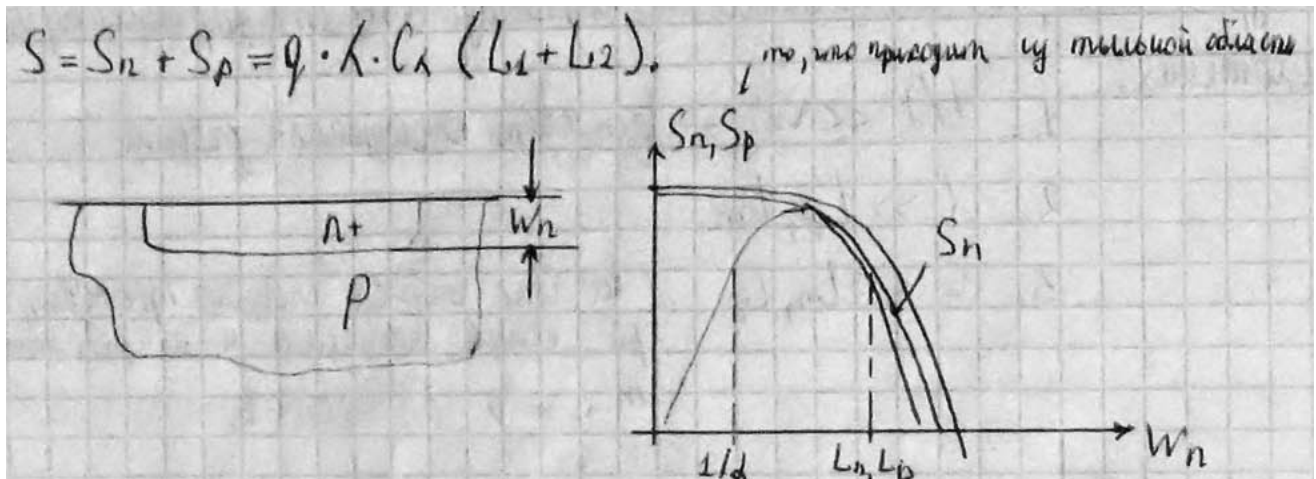 S = Sn + Sp = q · λ · Cλ (L1 + L2).
то, что приходит из тыльной области
Sn, Sp
n+
Wn
p
Sn
1/α
Ln, Lp
Wn